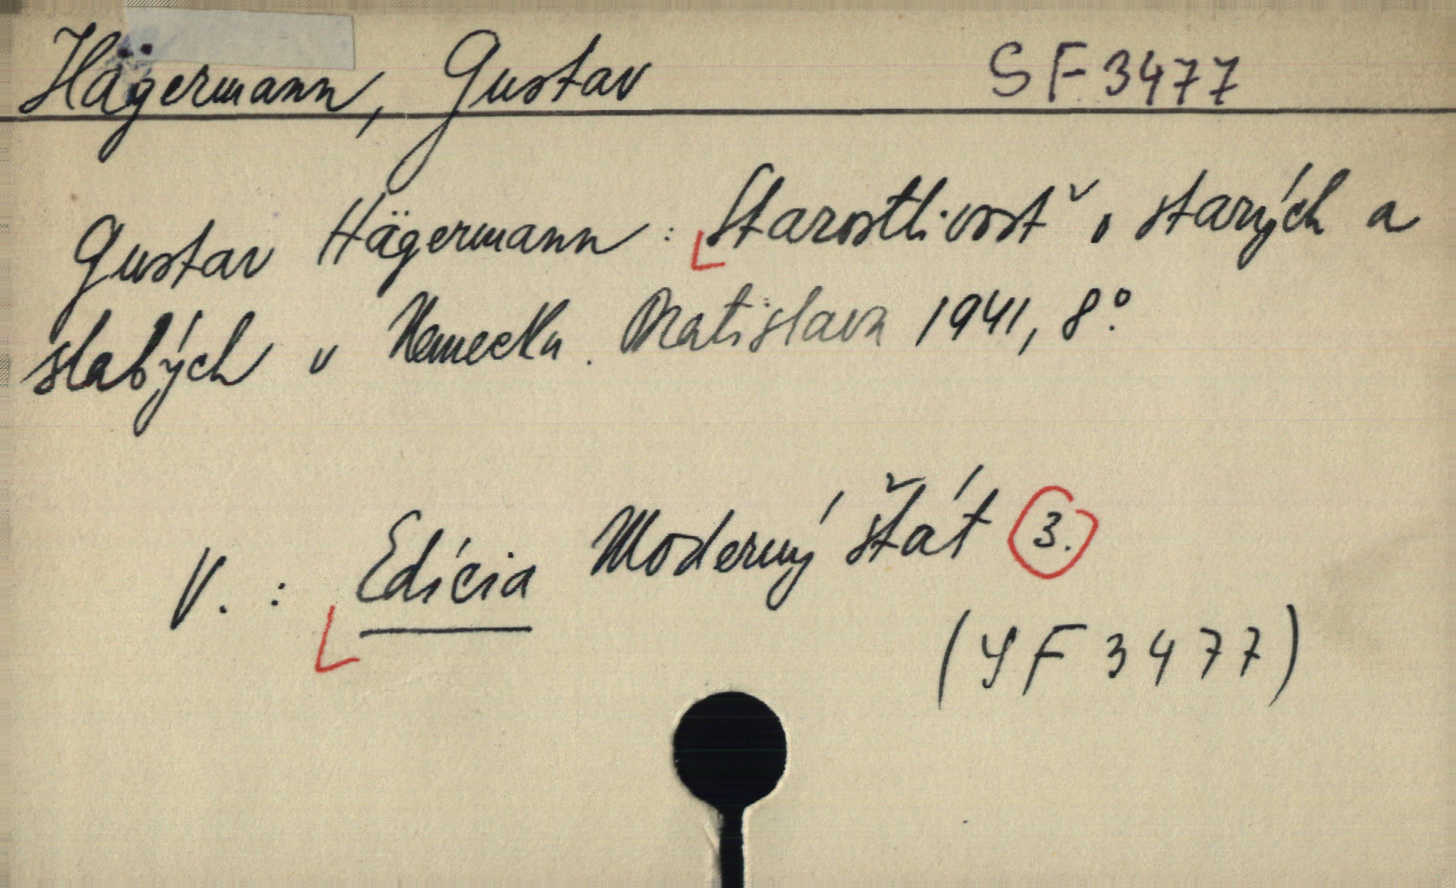 Hägermann, Gustav SF 3477
Gustav Hägermann: Starostlivosť o starých a
slabých v Nemecku. Bratislava 1941, 8°.
V.: Edícia Moderný štát 3.
(SF 3477)